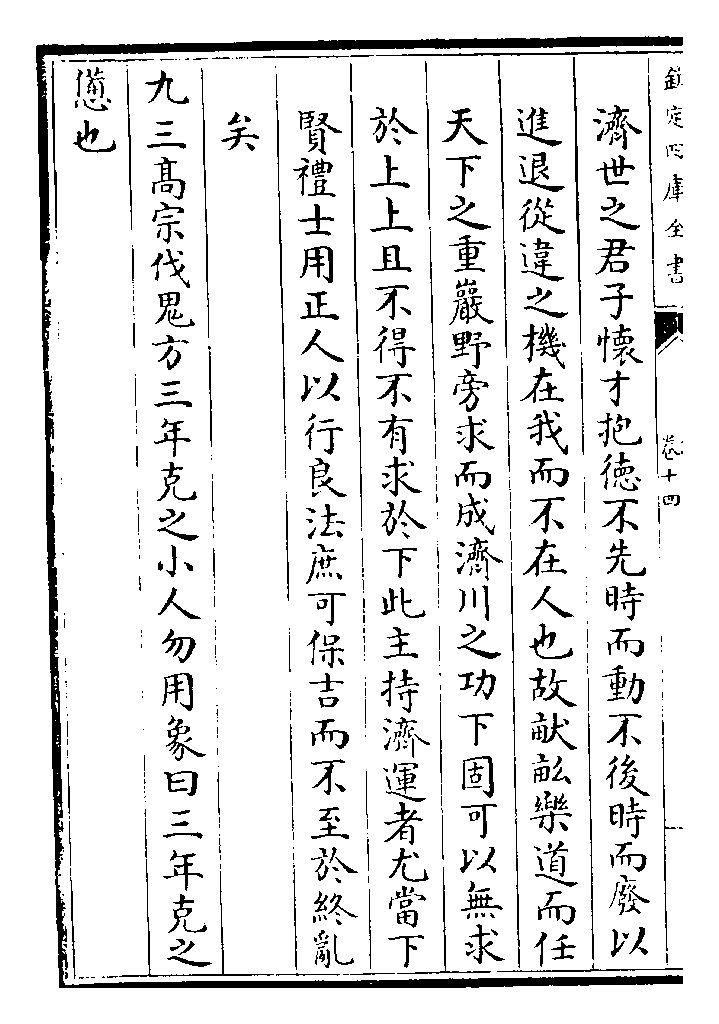 欽定四庫全書
卷十四
濟世之君子懷才抱徳不先時而動不後時而廢以
進退從違之機在我而不在人也故畎畝樂道而任
天下之重巖野旁求而成濟川之功下固可以無求
於上上且不得不有求於下此主持濟運者尤當下
賢禮士用正人以行良法庶可保吉而不至於終亂
矣
九三髙宗伐鬼方三年克之小人勿用象曰三年克之
憊也